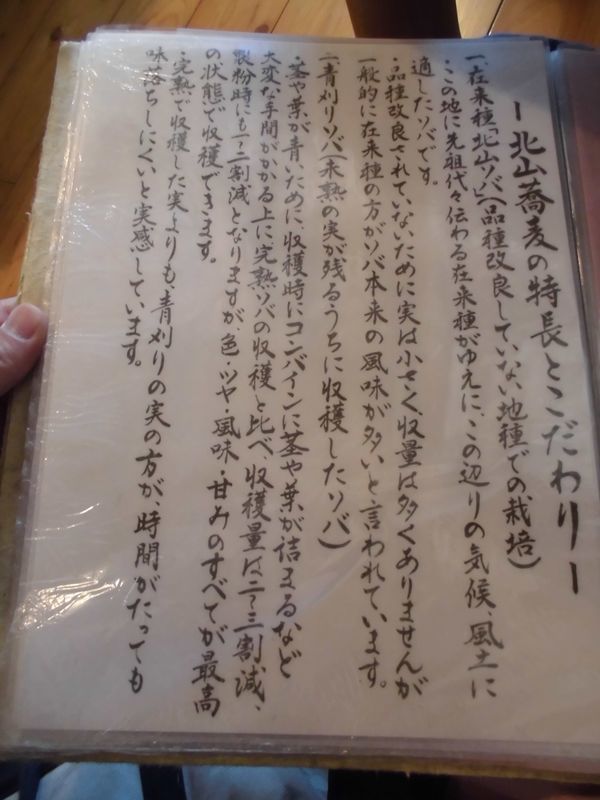 ー北山蕎麦の特長とこだわりー
一、在来種「北山ソバ」(品種改良していない地種での栽培)
・この地に先祖代々伝わる在来種がゆえに、この辺りの気候、風土に
適したソバです。
・品種改良されていないために実は小さく、収量は多くありませんが
一般的に在来種の方がソバ本来の風味が多いと言われています。
二、青刈りソバ(未熟の実が残るうちに収穫したソバ)
・茎や葉が青いために、収穫時にコンバインに茎や葉が詰まるなど
大変な手間がかかる上に完熟ソバの収穫と比べ、収穫量は二〜三割減、
製粉時にも一〜二割減となりますが、色・ツヤ・風味・甘みのすべてが最高
の状態で収穫できます。
・完熟で収穫した実よりも、青刈りの実の方が、時間がたっても
味落ちしにくいと実感しています。